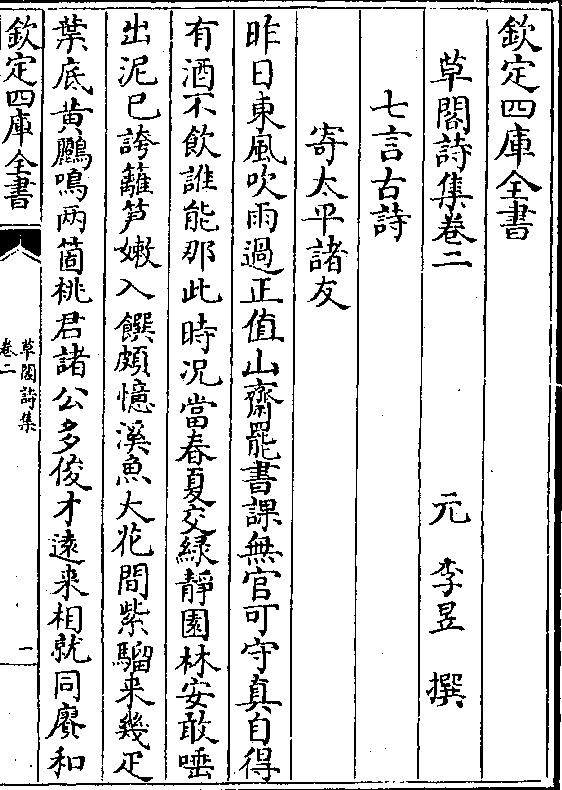 欽定四庫全書
草閣詩集卷二
元 李昱 撰
七言古詩
寄太平諸友
昨日東風吹雨過正值山齋罷書課無官可守真自得
有酒不飲誰能那此時况當春夏交綠靜園林安敢唾
出泥已誇蘺笋嫩入饌頗憶溪魚大花間紫騮来幾疋
葉底黄鸝鳴两箇桃君諸公多俊才遠来相就同廮和
欽定四庫全書
草閣詩集
卷二
一